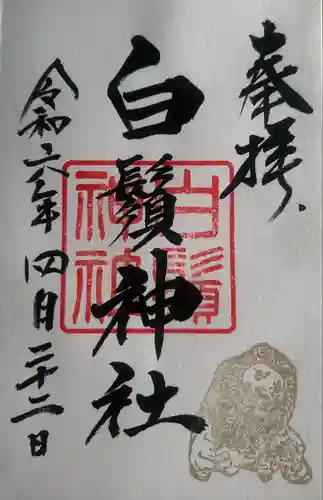 奉拝
白鬚神社
令和六年四月二十二日